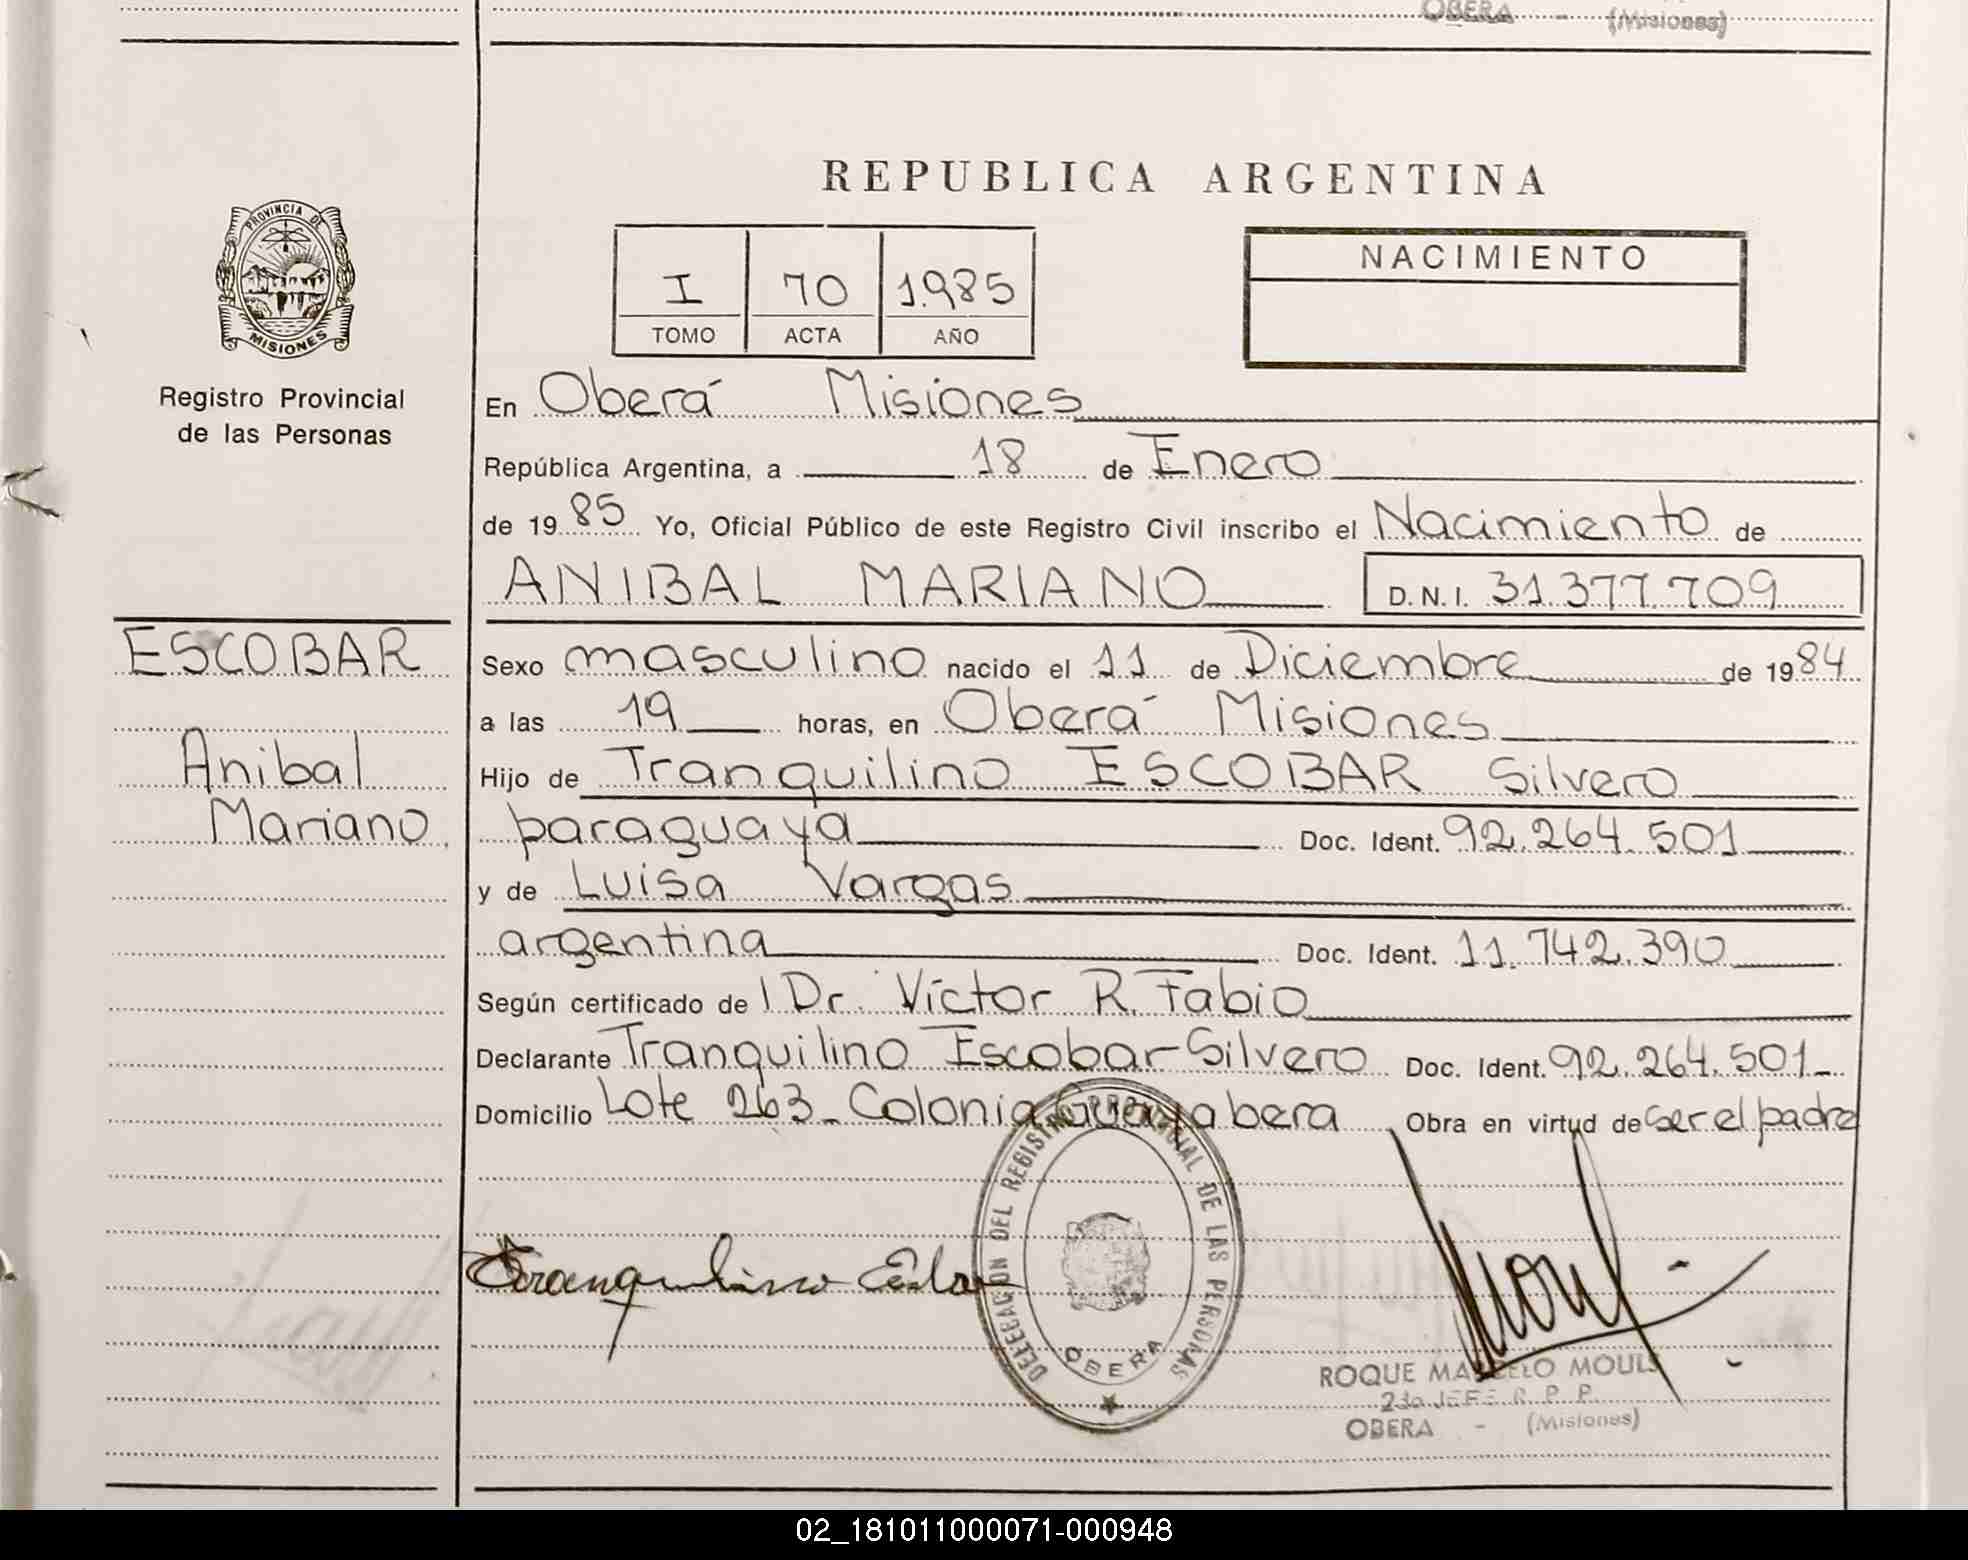 OBERA - (Misiones)
REPUBLICA ARGENTINA
PROVINCIA DE
MISIONES
Registro Provincial
de las Personas
I 70 1.985
TOMO ACTA AÑO
NACIMIENTO
En Oberá Misiones
República Argentina, a 18 de Enero
de 19 85 Yo, Oficial Público de este Registro Civil inscribo el Nacimiento de
ANIBAL MARIANO D.N.I. 31.377.709
ESCOBAR
Anibal
Mariano
Sexo masculino nacido el 11 de Diciembre de 19 84
a las 19 horas, en Oberá Misiones
Hijo de Tranquilino ESCOBAR Silvero
paraguaya Doc. Ident. 92.264.501
y de Luisa Vargas
argentina Doc. Ident. 11.742.390
Según certificado de Dr. Víctor R. Fabio
Declarante Tranquilino Escobar Silvero Doc. Ident. 92.264.501
Domicilio Lote 263 - Colonia Guayabera Obra en virtud de ser el padre
DELEGACION DEL REGISTRO PROVINCIAL DE LAS PERSONAS
OBERA
Tranquilino
ROQUE MARCELO MOULS
2do JEFE R. P. P.
OBERA - (Misiones)
02_181011000071-000948